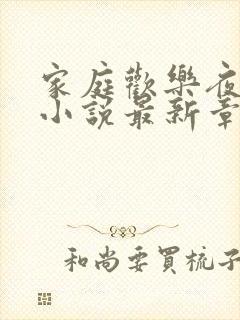 家庭歡樂夜
小說最新章
和尚要買梳子